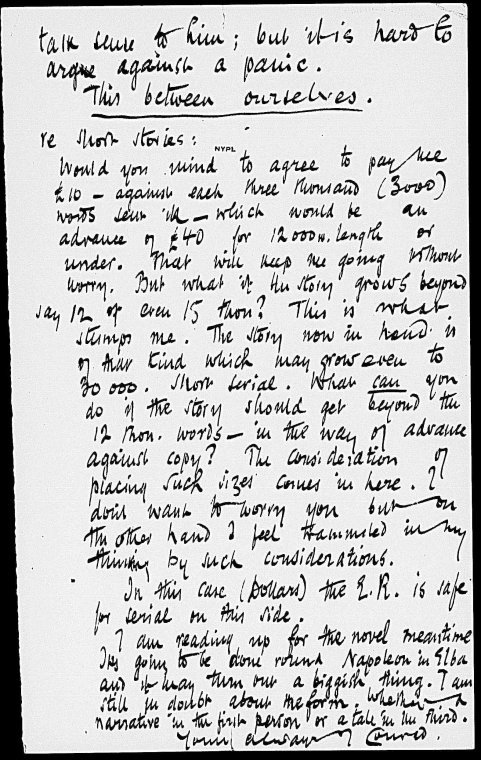 talk sense to him; but it is hard to
argue against a panic.
This between ourselves.
re Short stories:
NYPL
Would you mind to agree to pay me
£10 – against each three thousand (3000)
words sent in – which would be an
advance of £40 for 12000w. length or
under. That will keep me going without
worry. But what if the story grows beyond
say 12 or even 15 thou? This is what
stumps me. The story now in hand is
of that kind which may grow even to
30 000. Short serial. What can you
do if the story should get beyond the
12 thou. words – in the way of advance
against copy? The consideration of
placing such sizes comes in here. I
don't want to worry you but on
the other hand I feel trammeled in my
thinking by such considerations.
In this case (Dollars) the E.R. is safe
for serial on this side.
I am reading up for the novel meantime
It's going to be done round Napoleon in Elba
and it may turn out a biggish thing. I am
still in doubt about the form. Whether a
narrative in the first person or a tale in the third.
Yours always J Conrad.